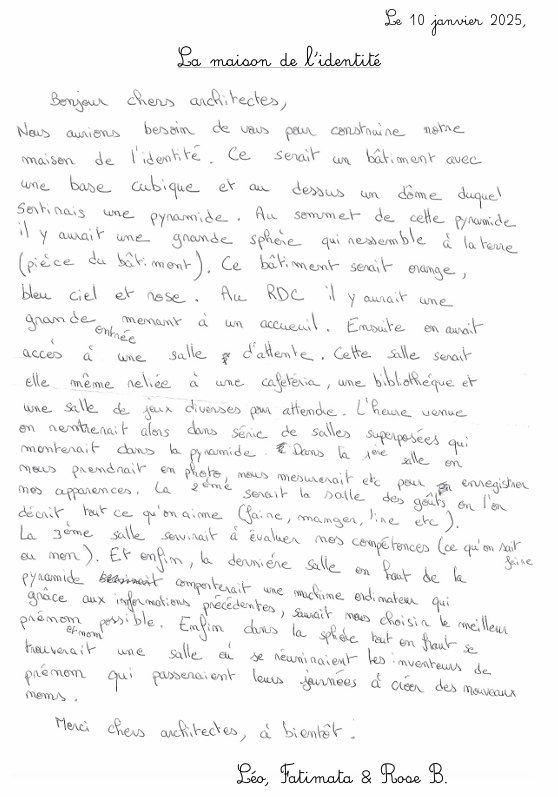 Le 10 janvier 2025,
La maison de l'identité
Bonjour chers architectes,
Nous aurions besoin de vous pour construire notre
maison de l'identité. Ce serait un bâtiment avec
une base cubique et au dessus un dôme duquel
sortirais une pyramide. Au sommet de cette pyramide
il y aurait une grande sphère qui ressemble à la terre
(pièce du bâtiment). Ce bâtiment serait orange,
bleu ciel et rose. Au RDC il y aurait une
grande entrée menant à un accueuil. Ensuite on aurait
accès à une salle d'attente. Cette salle serait
elle même reliée à une cafétéria, une bibliothéque et
une salle de jeux diverses pour attendre. L'heure venue
on rentrerait alors dans série de salles superposées qui
monterait dans la pyramide. Dans la 1ère salle on
nous prendrait en photo, nous mesurerait etc pour enregistrer
nos apparences. La 2ème serait la salle des goûts on l'on
décrit tout ce qu'on aime (faire, manger, lire etc).
La 3ème salle servirait à évaluer nos compétences (ce qu'on sait faire
ou non). Et enfin, la dernière salle en haut de la
pyramide comporterait une machine ordinateur qui
grâce aux informations précédentes, saurait nous choisir le meilleur
prénom et nom possible. Enfin dans la sphère tout en haut se
trouverait une salle où se réuniraient les inventeurs de
prénom qui passeraient leurs journées à créer des nouveaux
noms.
Merci chers architectes, à bientôt.
Léo, Fatimata & Rose B.